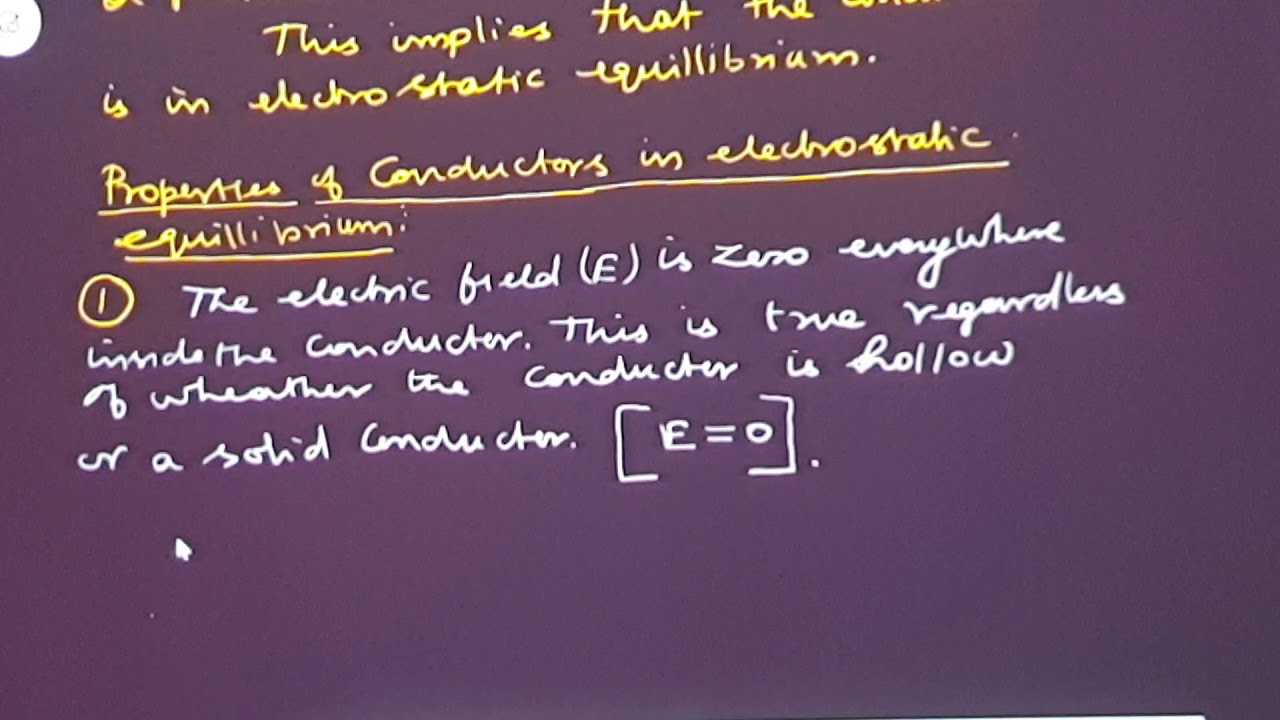 This implies that the
is in electrostatic equillibrium.
Properties of Conductors in electrostatic
equillibrium:
1 The electric field (E) is zero everywhere
inside the conductor. This is true regardless
of wheather the conductor is hollow
or a solid conductor. [E=0].